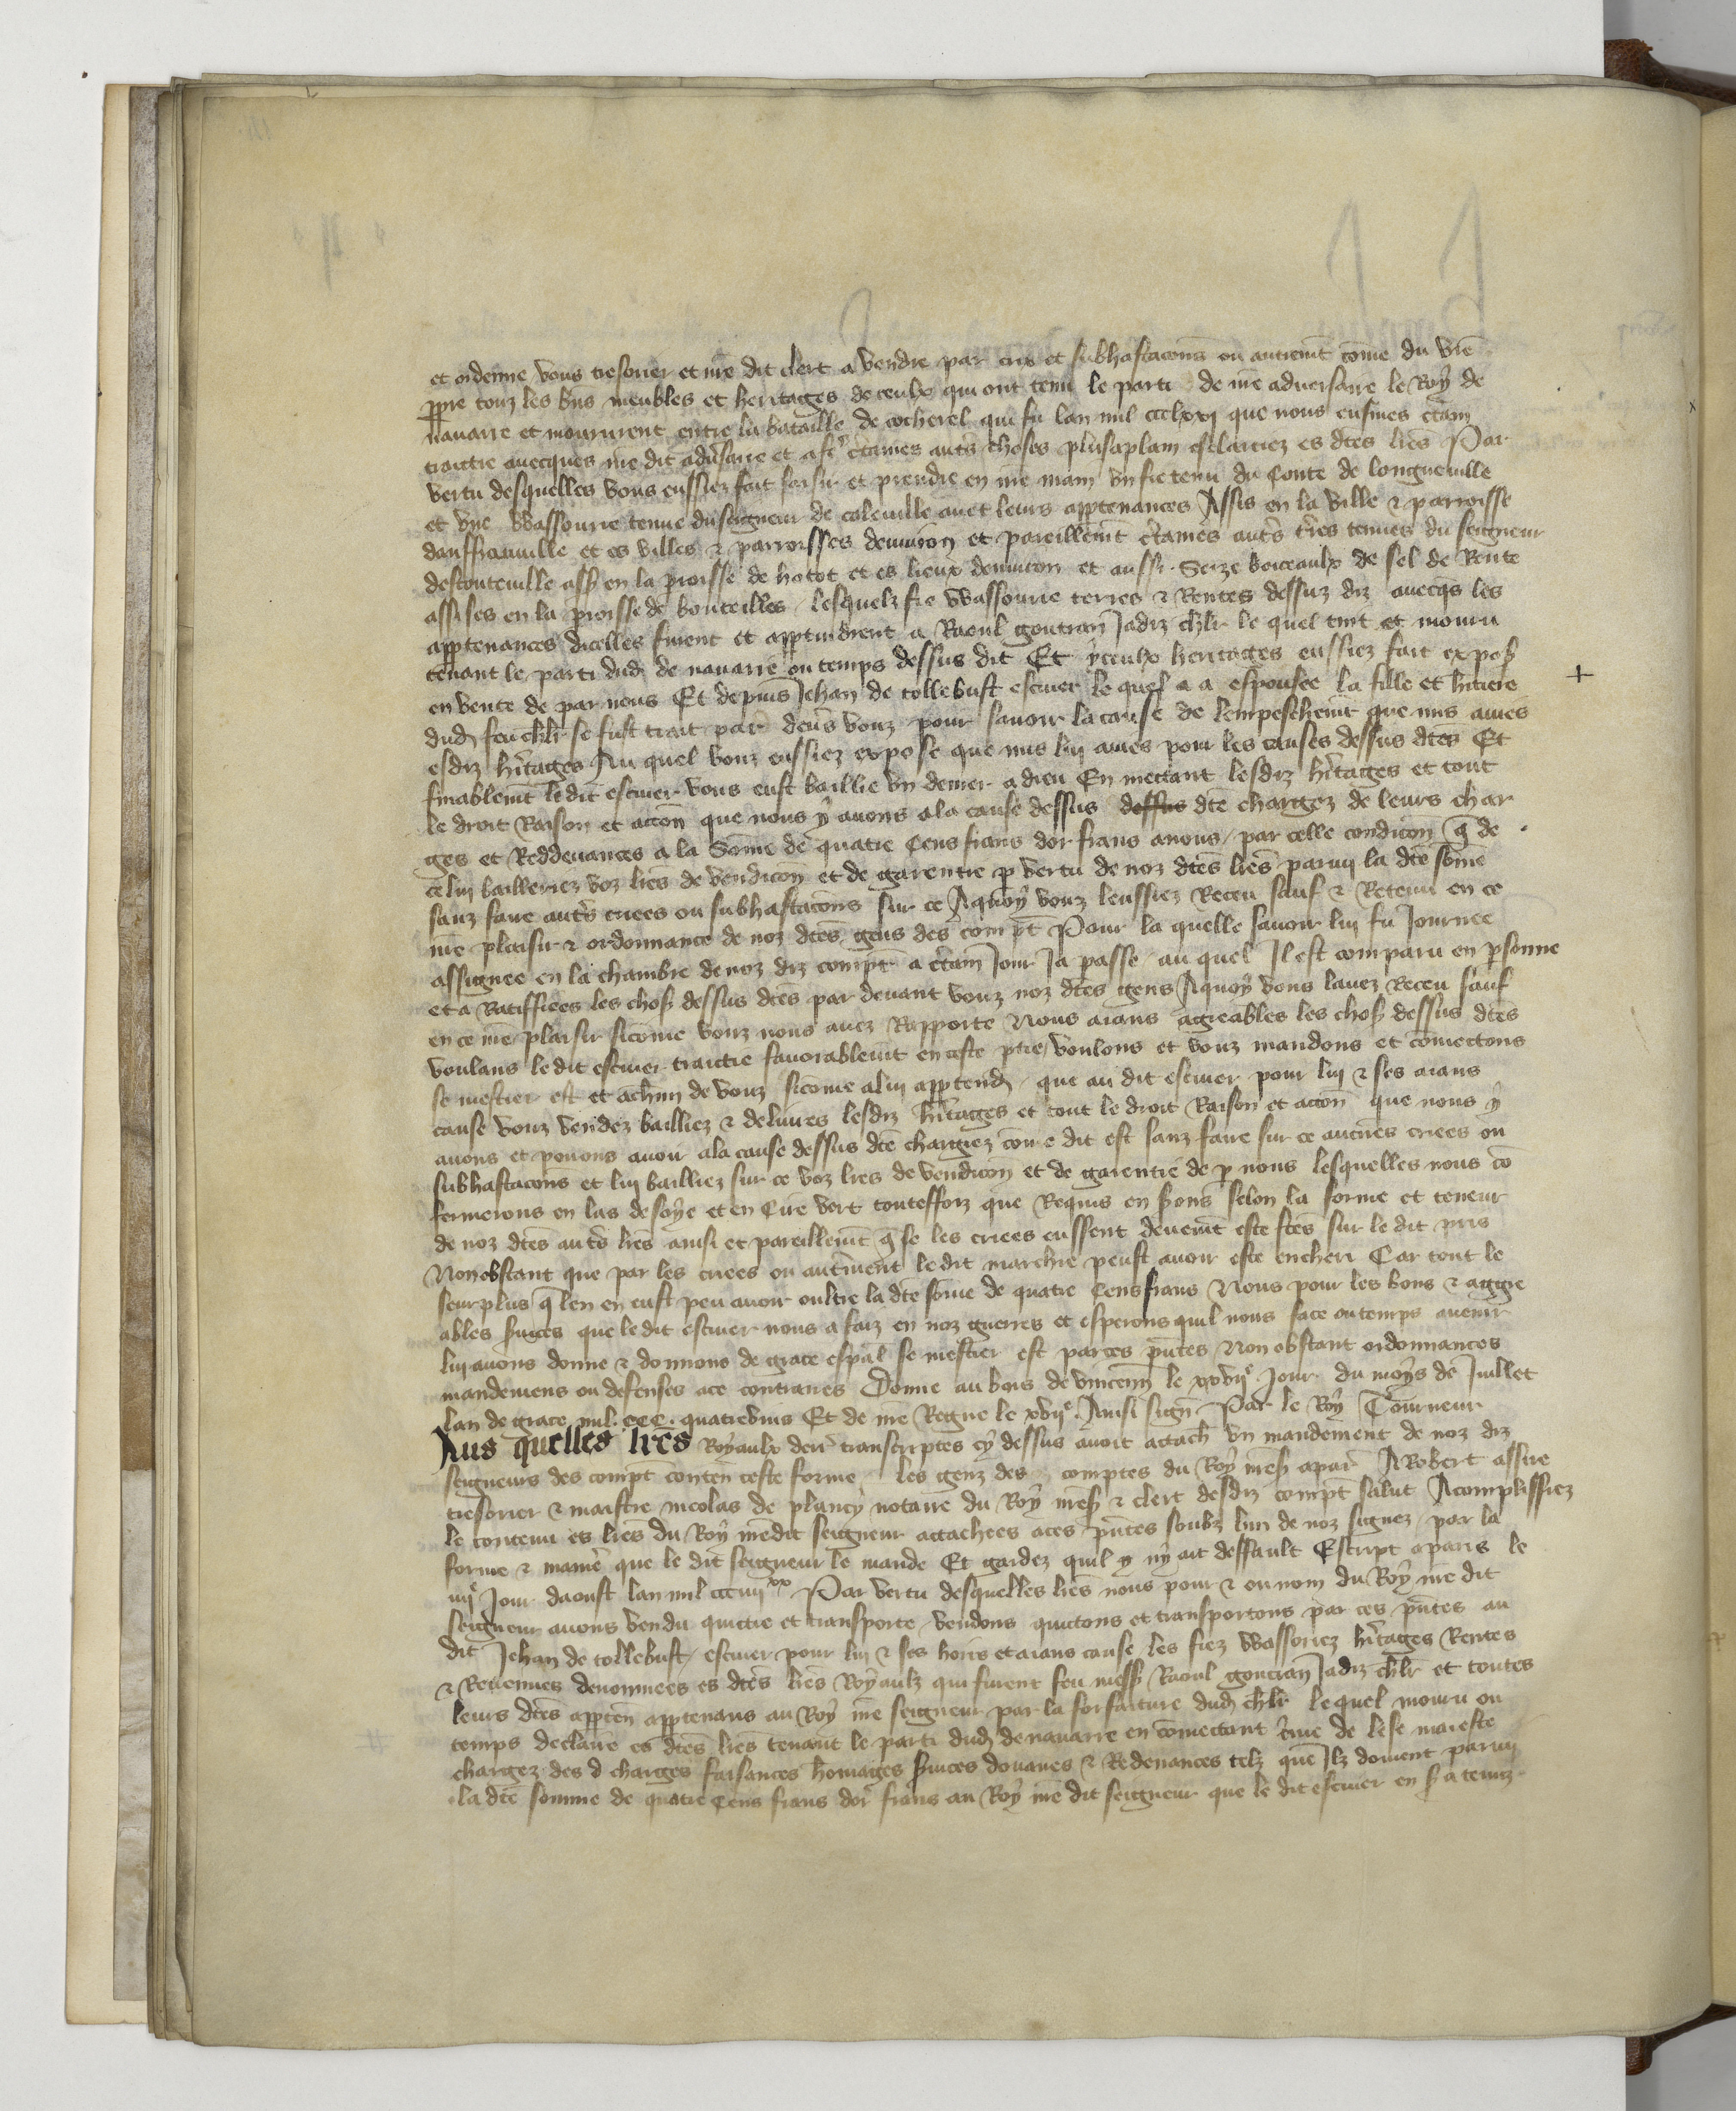 et ordenne vous tresorier et nre dit clert a vendre par cris et subhastacons ou autremt come du vre
ppre touz les bns meubles et heritages de ceulx qui ont tenu le parti de nre adversaire le Roy de
navarre et moururent entre la bataille de cocherel qui fu lan mil ccclxxi que nous eusmes ctain
traittie avecques nre dit adversaire et a ctaines autres choses plus a plain esclarciez es dtes lres Par
vertu desquelles vous eussiez fait saisir et prendre en nre main un fie tenu du Conte de longueville
et une vvassourie tenue du seigneur de coleville avec leurs apptenances Assis en la ville & parroisse
danffrauville et es villes & parroisses denviron et pareillemt ctaines autres tres tenues du seigneur
destouteville ass en la proisse de hotot et es lieux denviron et aussi Seize boiceaulx de sel de Rente
assises en la proisse de bouteilles lesquelz fie vvassourie terres & Rentes dessuz diz avecqs les
apptenances dicelles furent et apptindrent a Raoul goutran Jadiz chlr le quel tint et mouru
tenant le parti dud de navarre ou temps dessus dit Et yceulx heritages eussiez fait expos
en vente de par nous Et depuis Jehan de tollebust escuier le quel a a espousee la fille et hitiere
dud feu chlr se fust trait par devs vouz pour savoir la cause de lempeschemt que mis avies
esdiz hritages Au quel vouz eussiez expose que mis luy avies pour les causes dessus dtes Et
finablemt le dit escuier vous eust baillie un denier a dieu En mettant lesdiz hritages et tout
le droit Raison et accon que nous y avons a la cause dessus dessus dte chargez de leurs char
ges et Reddevances a la Some de quatre Cens frans dor frans a nous par celle condicon q de
ce luy bailleriez voz lres de vendicon et de garentie p vertu de noz dtes lres parmi la dte some
sanz faire autrs criees ou subhastacons sur ce Aquoy vouz leussiez Receu sauf & Retenu en ce
nre plaisir & ordonnance de noz dtes gens des compt Pour la quelle savoir luy fu Journee
assignee en la chambre de noz diz compt a ctain Jour Ja passe au quel Il est comparu en psonne
et a Ratiffiees les chos dessus dtes par devant vouz noz dtes gens Aquoy vous lavez Receu sauf
en ce nre plaisir sicome vouz nous avez Rapporte Nous aians agreables les chos dessus dtes
voulans le dit escuier traictie favorablemt en ceste ptie voulons et vouz mandons et comectons
se mestier est et achun de vouz sicome a luy apptend que au dit escuier pour luy & ses aians
cause vouz vendez bailliez & delivres lesdiz hritages et tout le droit Raison et accon que nous y
avons et povons avoir a la cause dessus dte chargiez come dit est sanz faire sur ce aucunes criees ou
subhastacons et luy bailliez sur ce voz lres de vendicon et de garentie de p nous lesquelles nous co
fermerons en las de soye et en Cire vert touteffoiz que Requis en srons selon la forme et teneur
de noz dtes autrs lres ainsi et pareillemt q se les criees eussent deuemt este ftes sur le dit pris
Nonobstant que par les criees ou autrement le dit marchie peust avoir este encheri Car tout le
seurplus q len en eust peu avoir oultre la dte some de quatre Cens frans Nous pour les bons & aggre
ables srvices que le dit escuier nous a faiz en noz guerres et esperons quil nous face ou temps avenir
luy avons donne & donnons de grace espal se mestier est par ces pntes Non obstant ordonnances
mandemens ou defenses a ce contraires Donne au bois de vincenn le xxvije Jour du moys de Juillet
lan de grace mil. ccc. quatrevins Et de nre Regne le xvije. Ainsi sign Par le Roy Tourneur
Aus quelles lres Royaulx devt transcriptes cy dessus avoit attach un mandement de noz diz
seigneurs des compt conten ceste forme les genz des comptes du Roy nres apar A Robert assire
tresorier & maistre nicolas de plancy notaire du Roy nres & clerc desdiz compt salut Acomplissiez
le contenu es lres du Roy nredit seigneur attachees a ces pntes soubz lun de noz signez par la
forme & manie que le dit seigneur le mande Et gardez quil y ny ait deffault Escript a paris le
iiije Jour daoust lan mil ccciiijxx Par vertu desquelles lres nous pour & ou nom du Roy nre dit
seigneur avons vendu quictie et transporte vendons quictons et transportons par ces pntes au
dit Jehan de tollebust escuier pour luy & ses hoirs et aians cause les fiez vvassoriez hritages Rentes
& Revenues denommees es dtes lres Royaulz qui furent feu mess Raoul goutran Jadiz chlr et toutes
leurs dtes apptenn apptenans au Roy nre seigneur par la forfaiture dud chlr lequel mouru ou
temps declaire es dtes lres tenant le parti dud de navarre en comectant crime de lese maieste
chargez des d charges faisances homages srvices douaires & Redevances telz que Ilz doivent parmi
la dte somme de quatre Cens frans dor frans au Roy nre dit seigneur que le dit escuier en s a tenuz